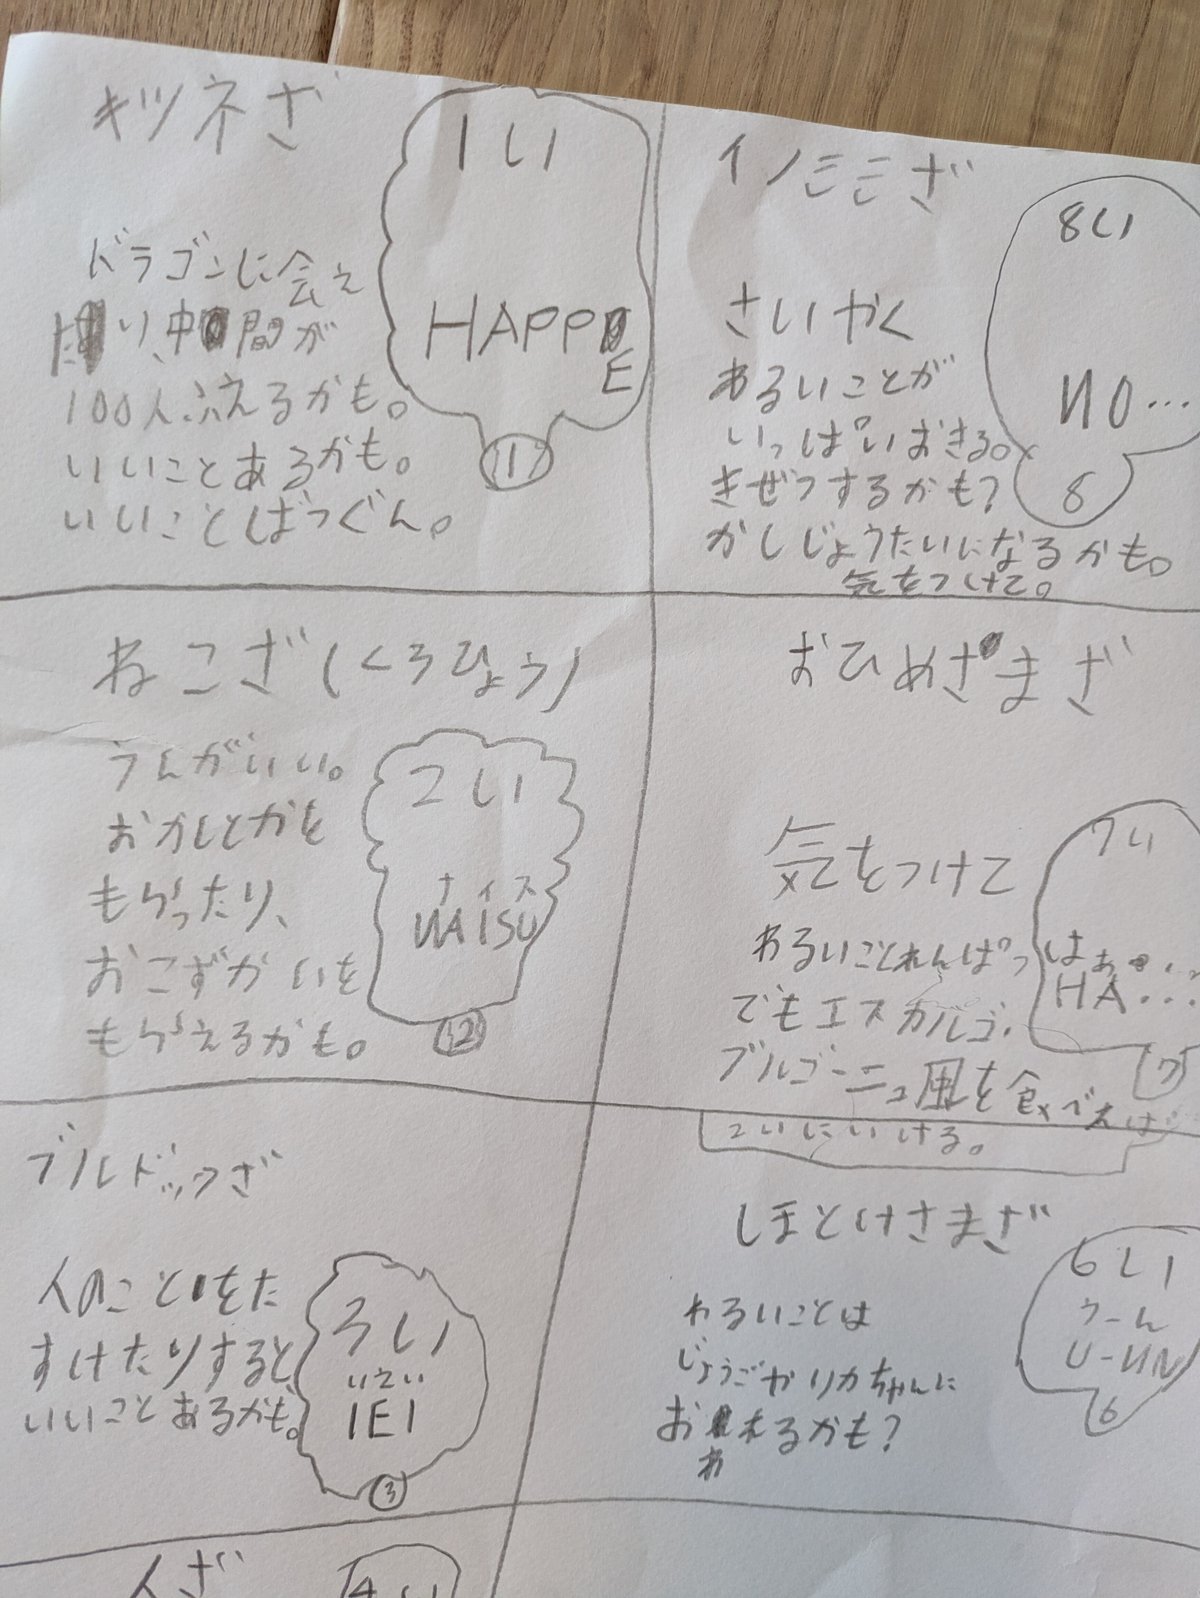 キツネざ
1い
HAPPE
1
ドラゴンに会え
り、中間が
100人ふえるかも。
いいことあるかも。
いいことばつぐん。
イノミミざ
8い
NO…
8
さいやく
わるいことが
いっぱいおきる。
きぜつするかも?
かしじょうたいになるかも。
気をつけて。
ねこざ(くろひょう)
2い
ナイス
NAISU
2
うんがいい。
おかしとかを
もらったり、
おこずかいを
もらえるかも。
おひめさまざ
7い
はぁ…
HA…
7
気をつけて
わるいことれんぱつ
でもエスカルゴ・
ブルゴーニュ風を食べえば
2いにいける。
ブルドックざ
3い
いえい
IEI
3
人のことをた
すけたりすると
いいことあるかも。
ほとけさまざ
6い
うーん
U-NN
6
わるいことは
じょうごやリカちゃんに
おわれるかも?
人ざ
4い